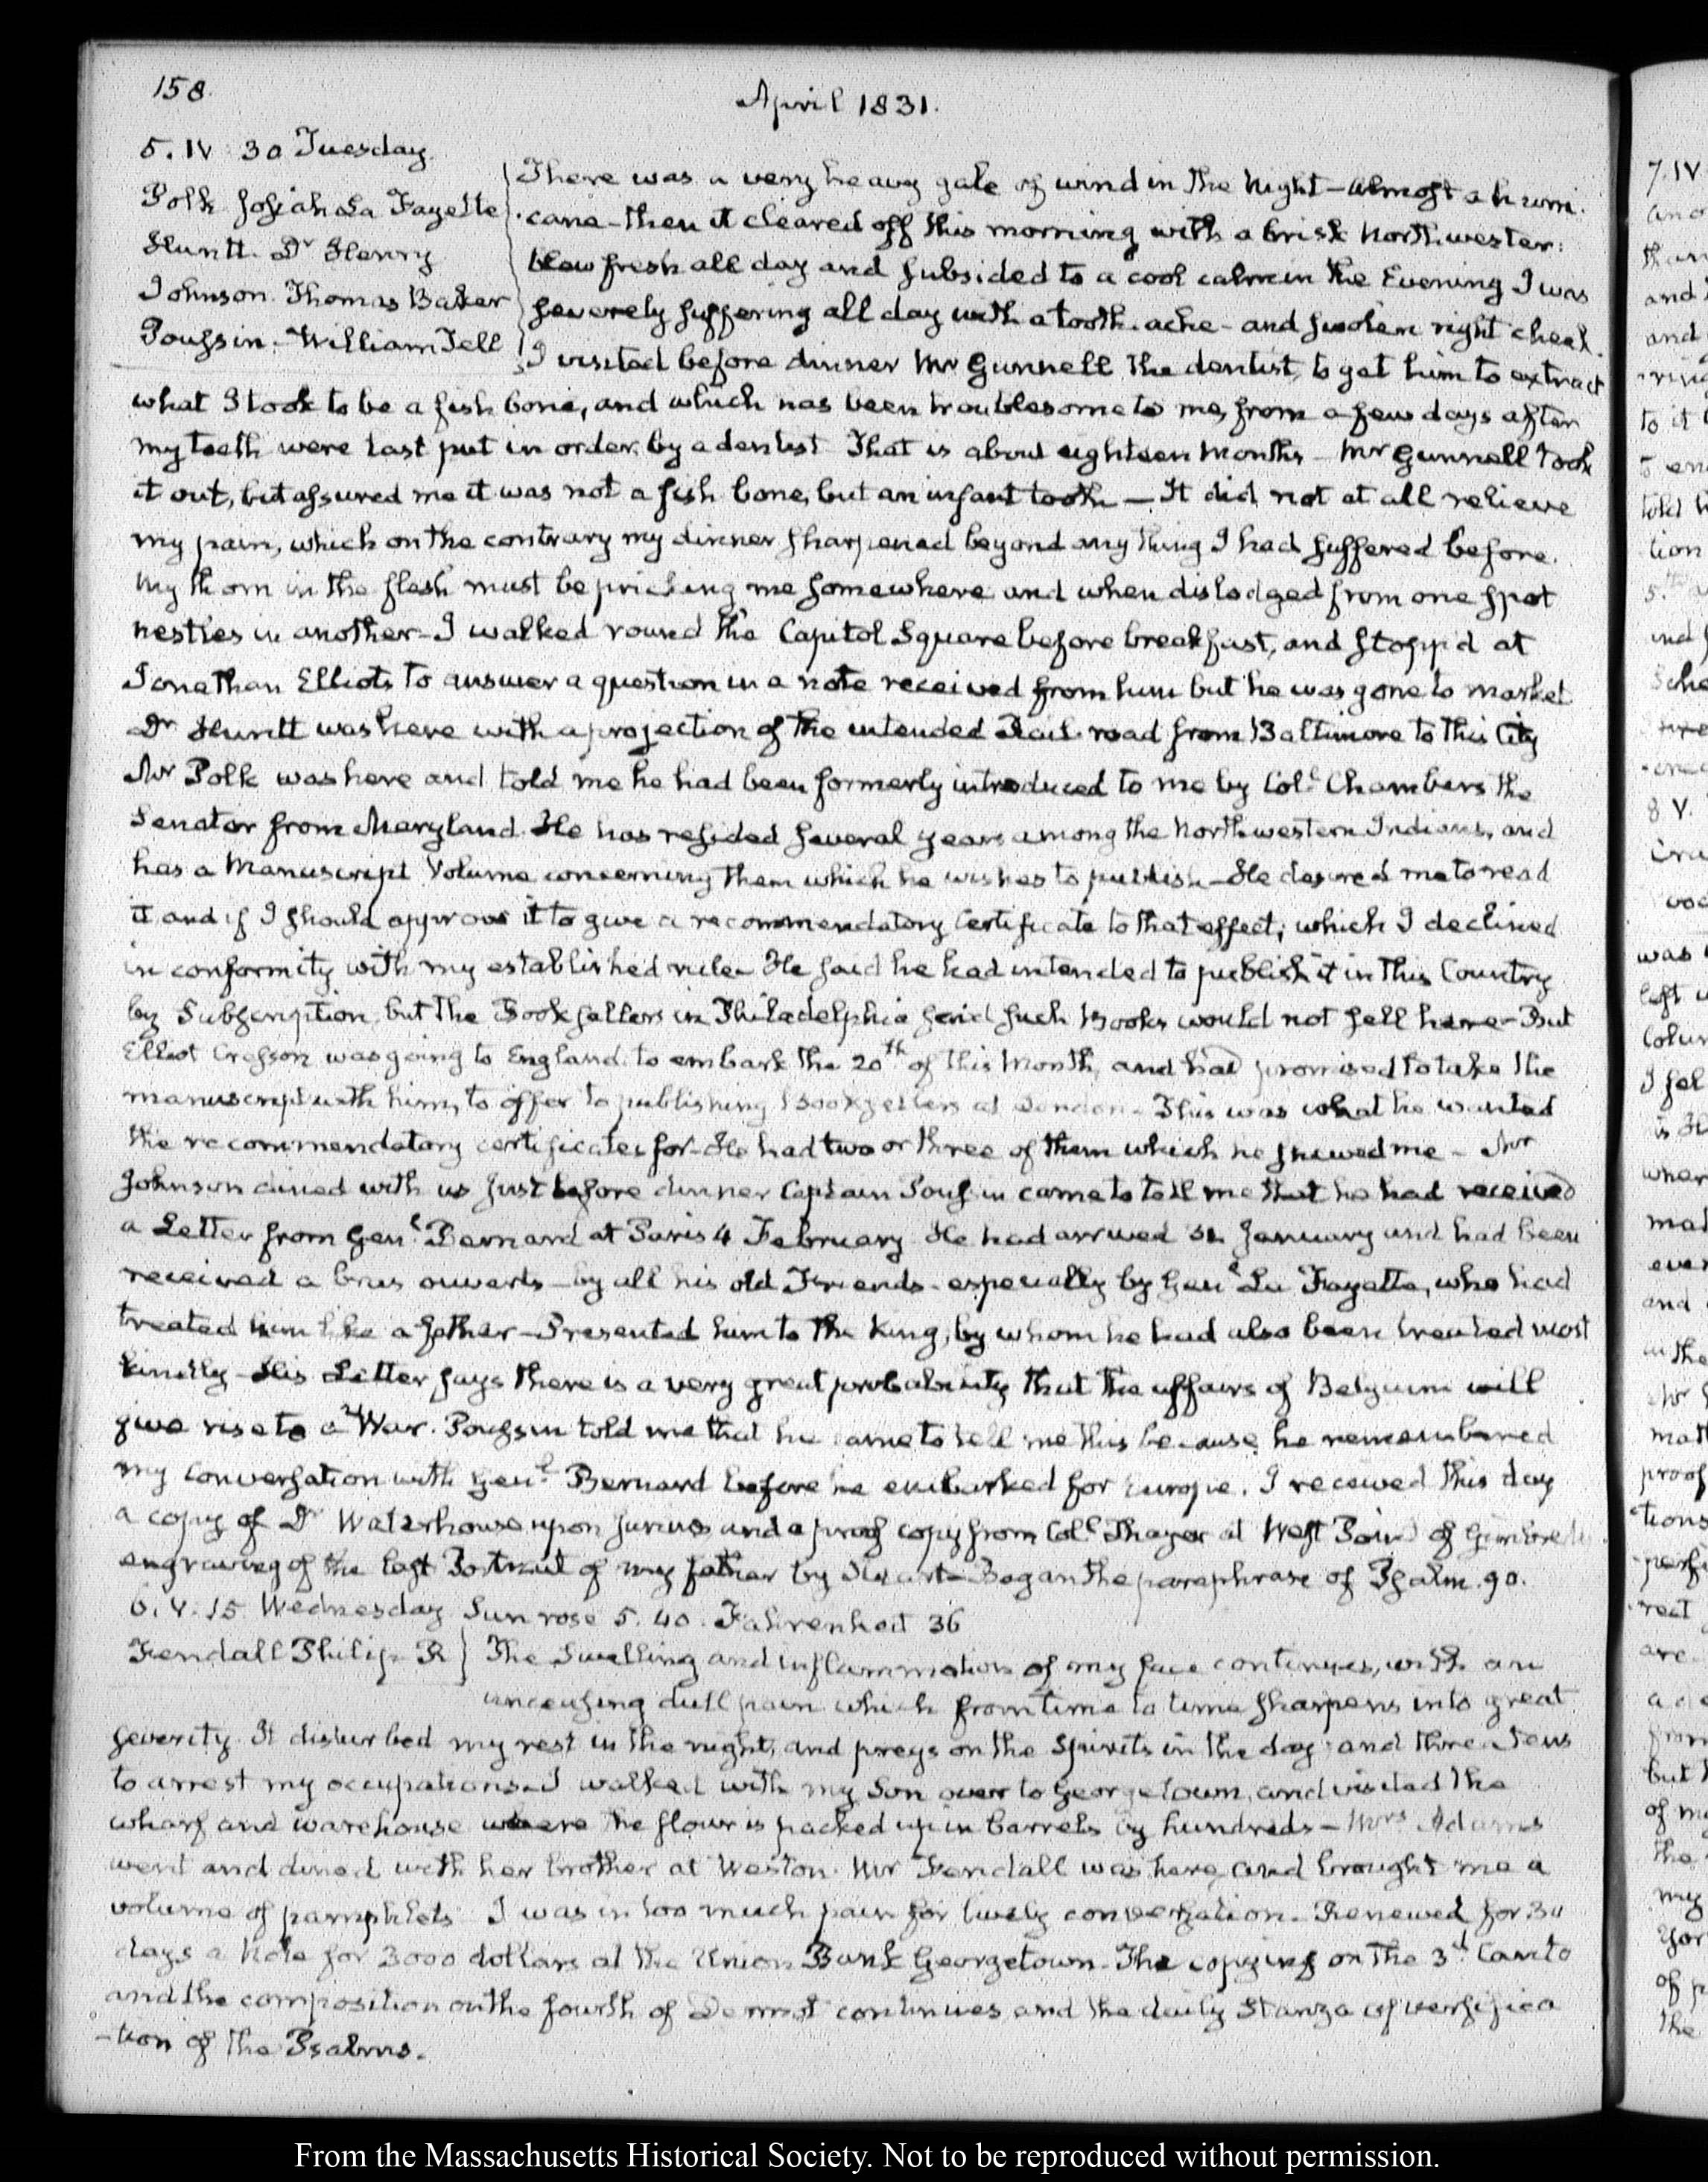 158.
April 1831.
5. IV. 30 Tuesday.
Polk. Josiah La Fayette
Huntt. Dr Henry
Johnson. Thomas Baker
Poussin. William Tell
There was a very heavy gale of wind in the Night — almost a hurri-
cane — then it cleared off this morning with a brisk Northwester:
blew fresh all day and subsided to a cool calm in the Evening I was
severely suffering all day with a tooth-ache — and swolen right cheek.
I visited before dinner Mr Gunnell the dentist, to get him to extract
what I took to be a fish bone, and which has been troublesome to me, from a few days after
my teeth were last put in order by a dentist That is about eighteen Months — Mr Gunnell took
it out, but assured me it was not a fish bone, but an infant tooth — It did not at all relieve
my pain, which on the contrary my dinner sharpened beyond any thing I had suffered before.
My thorn in the flesh must be pricking me somewhere and when dislodged from one spot
nestles in another — I walked round the Capitol Square before breakfast, and stopp'd at
Jonathan Elliot's to answer a question in a note received from him but he was gone to market
Dr Huntt was here with a projection of the intended Rail-road from Baltimore to this City
Mr Polk was here and told me he had been formerly introduced to me by Coll. Chambers the
Senator from Maryland. He has resided several years among the Northwestern Indians, and
has a Manuscript Volume concerning them which he wishes to publish — He desired me to read
it and if I should approve it to give a recommendatory Certificate to that effect; which I declined
in conformity with my established rule — He said he had intended to publish it in this Country
by Subscription, but the Booksellers in Philadelphia said such Books would not sell here — But
Elliot Cresson was going to England. to embark the 20th of this Month, and had promised to take the
manuscript with him, to offer to publishing Booksellers at London — This was what he wanted
the recommendatory certificates for — He had two or three of them which he shewed me — Mr
Johnson dined with us Just before dinner Captain Poussin came to tell me that he had received
a Letter from Genl. Bernard at Paris 4 February He had arrived 31 January and had been
received a bras ouverts — by all his old Friends — especially by Genl La Fayette, who had
treated him like a father — Presented him to the King, by whom he had also been treated most
kindly — His Letter says there is a very great probability that the affairs of Belgium will
give rise to a War. Poussin told me that he came to tell me this because he remembered
my conversation with Genl. Bernard before he embarked for Europe. I received this day
a copy of Dr Waterhouse upon Junius and a proof copy from Coll. Thayer at West Point of
engraving of the last Portrait of my father by Stuart — Began the paraphrase of Psalm. 90.
6. V. 15. Wednesday. Sun rose 5. 40. Fahrenheit 36
Fendall Philip R
The Swelling and inflammation of my face continues, with an
unceasing dull pain which from time to time sharpens into great
severity. It disturbed my rest in the night, and preys on the Spirits in the day: and threatens
to arrest my occupations — I walked with my Son over to Georgetown, and visited the
wharf and warehouse where the flour is packed up in barrels by hundreds — Mrs Adams
went and dined with her brother at Weston. Mr Fendall was here, and brought me a
volume of pamphlets I was in too much pain for lively conversation — Renewed for 30
days a Note for 3000 dollars at the Union Bank Georgetown — The copying on the 3d. Canto
and the composition on the fourth of Dermot continues and the daily Stanza of versifica
-tion of the Psalms.
From the Massachusetts Historical Society. Not to be reproduced without permission.